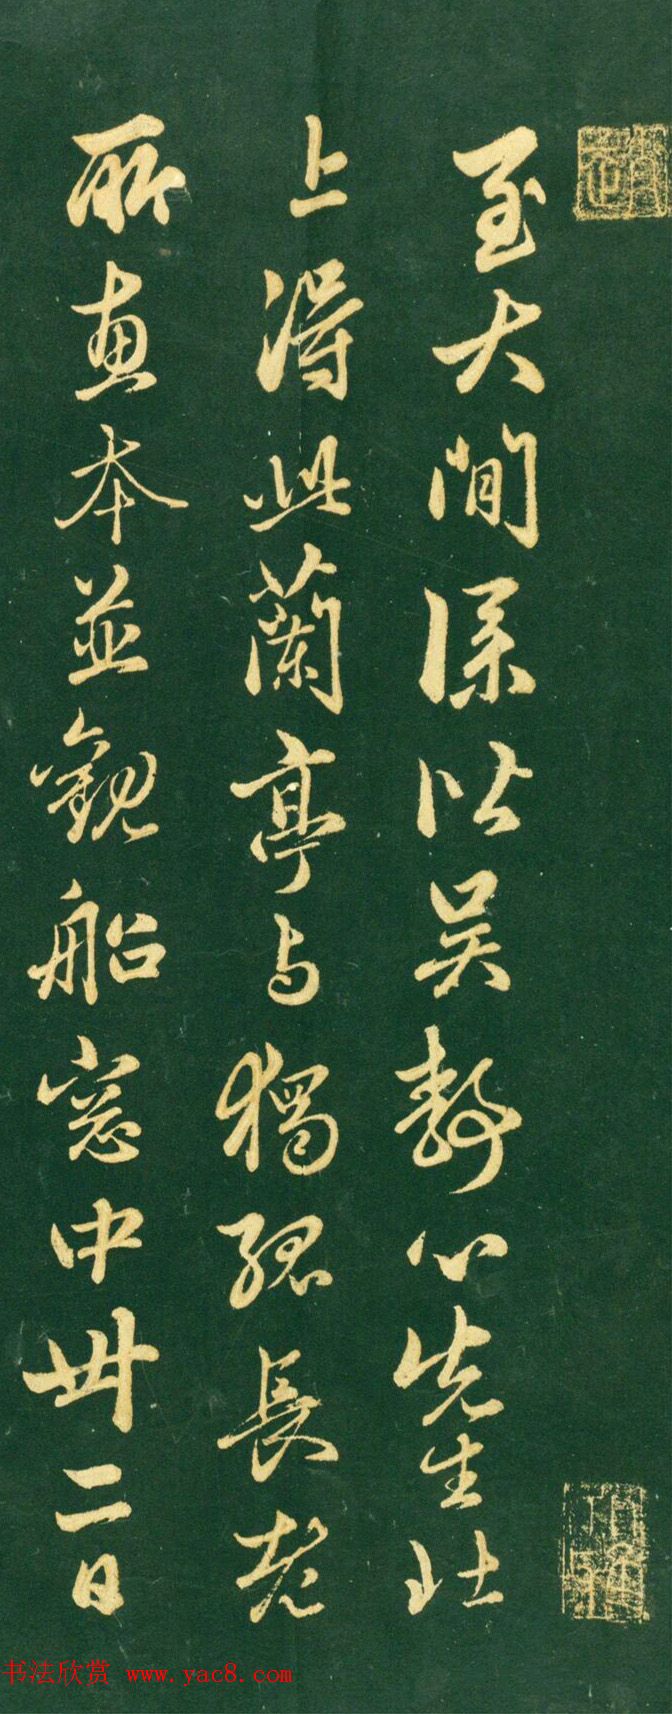 至大間僕從吳靜心先生北
上得此蘭亭与獨孤長老
所惠本並觀船窓中廿二日
书法欣赏 www.yac8.com